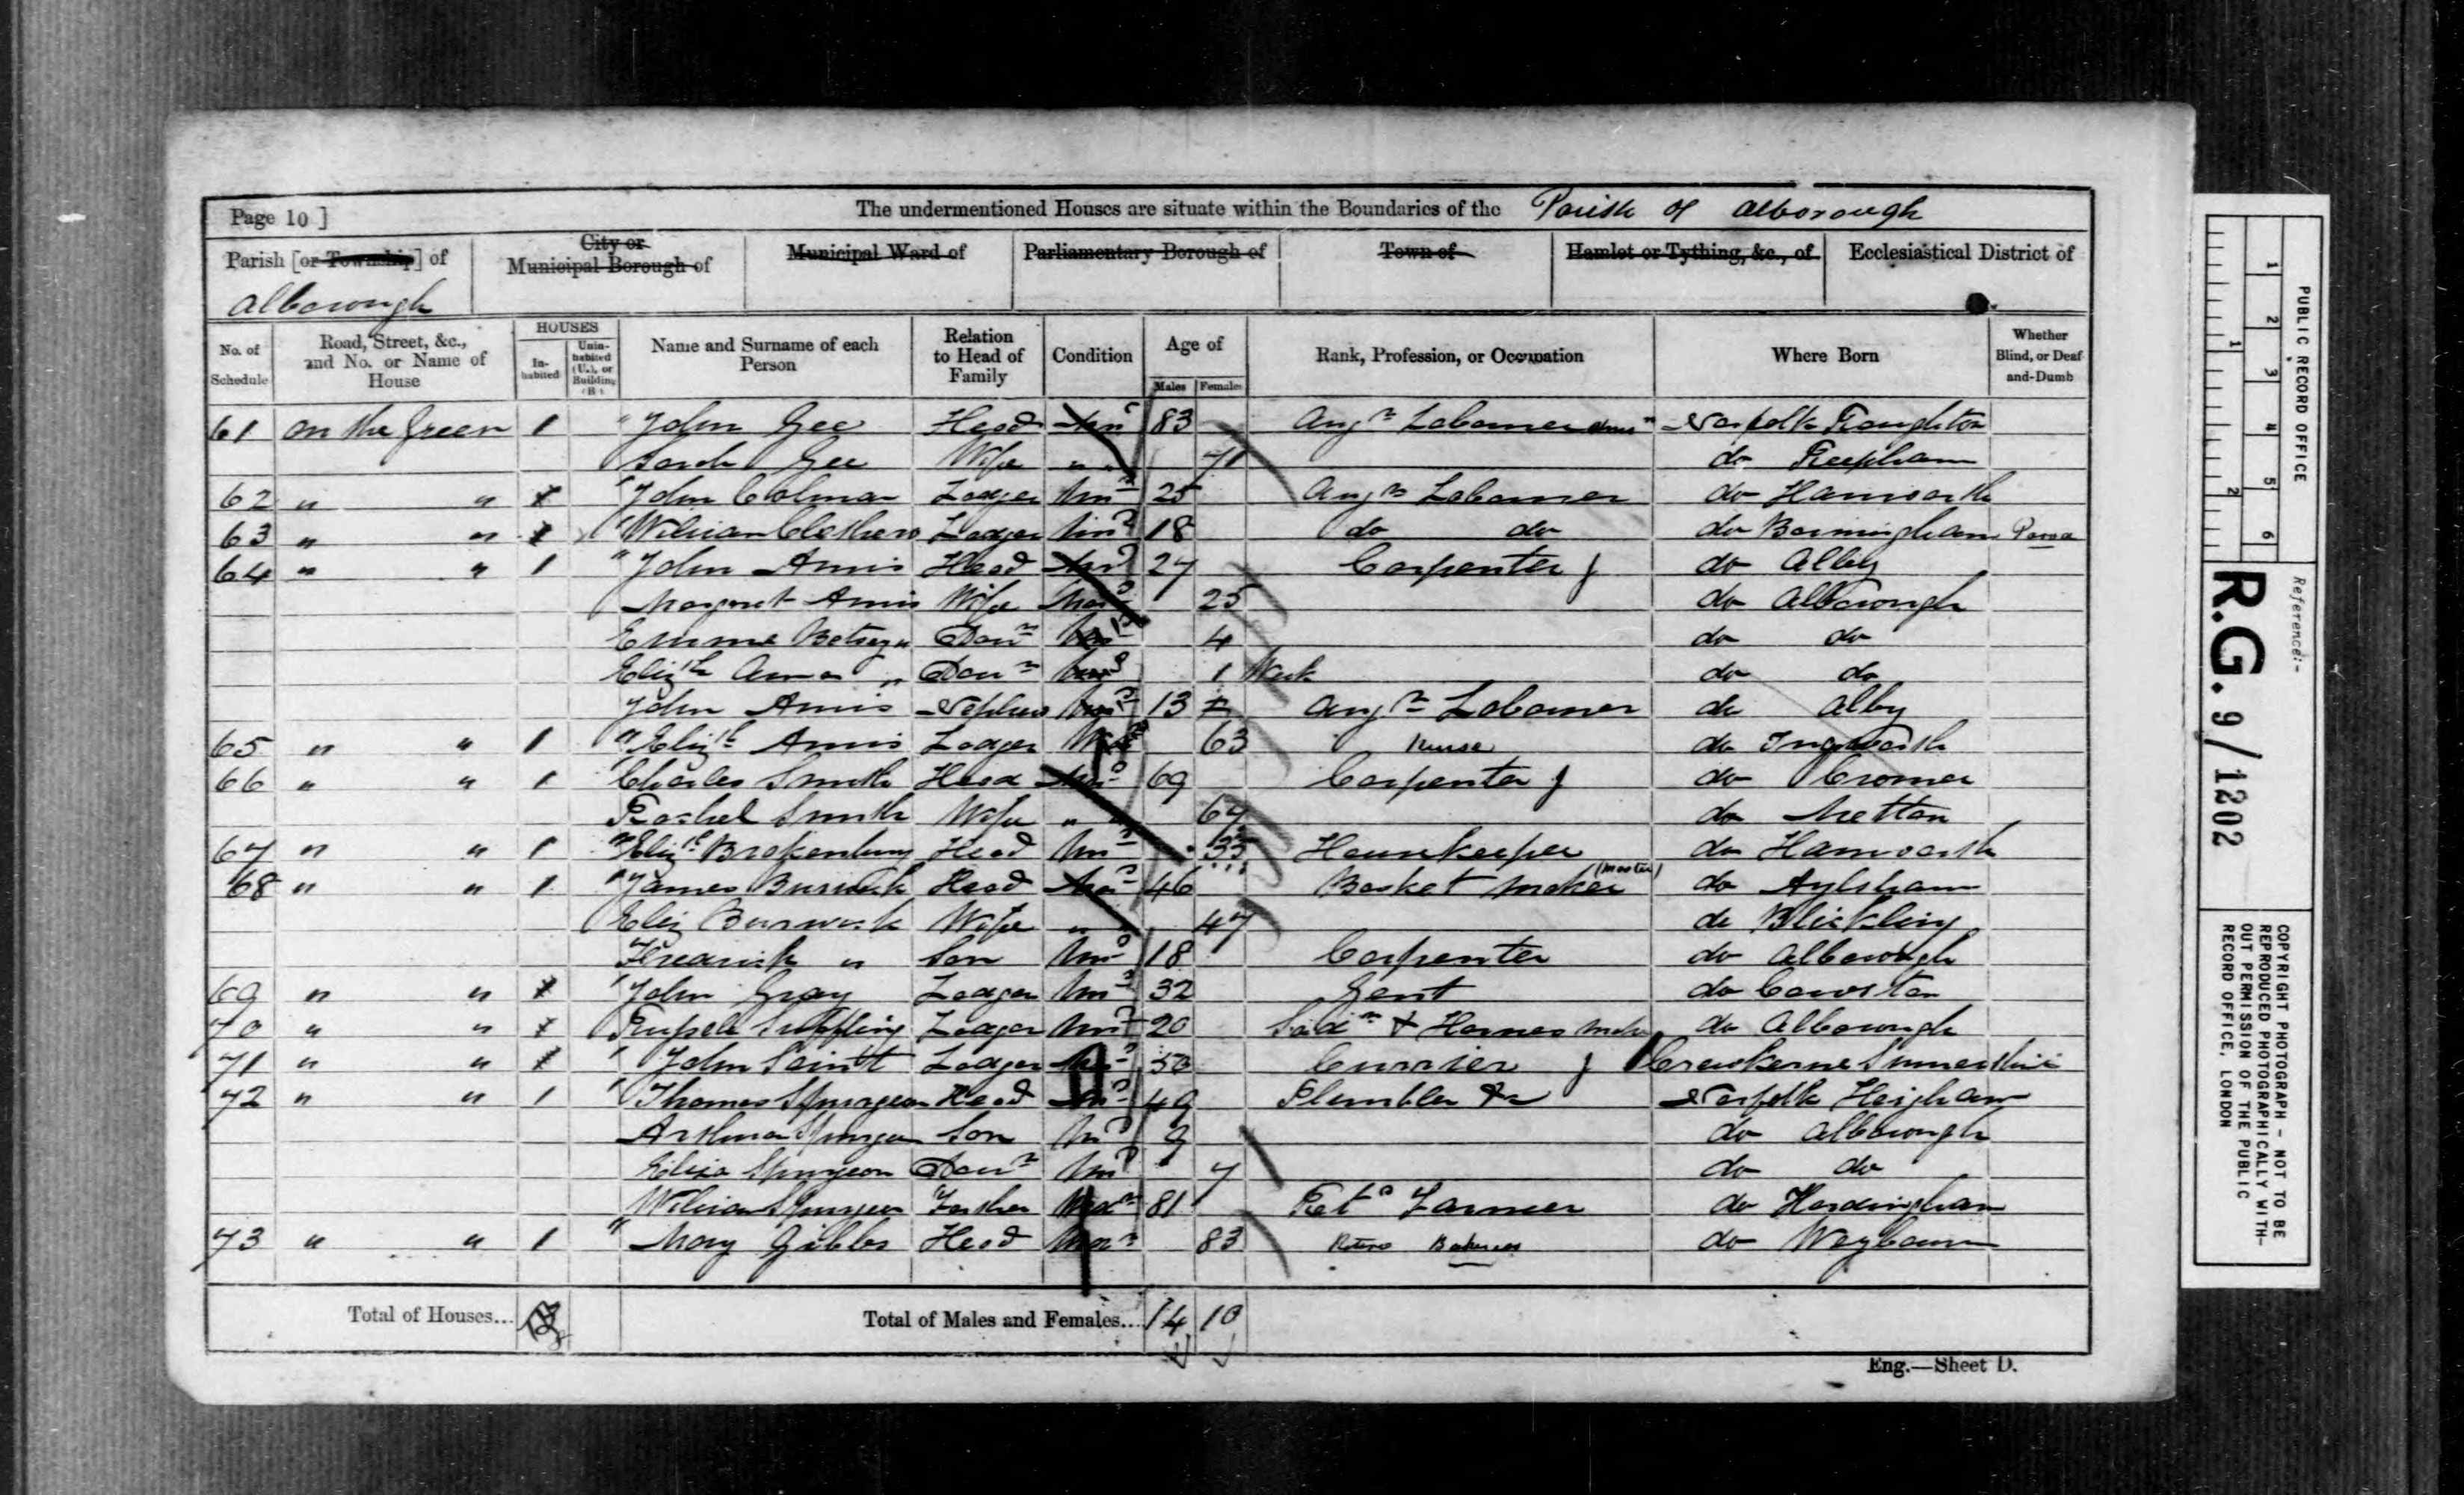 Page 10 ]
The undermentioned Houses are situate within the Boundaries of the Parish of Alborough
Parish [or Township] of Alborough
City or Municipal Borough of
Municipal Ward of
Parliamentary Borough of
Town of
Hamlet or Tything, &c., of
Ecclesiastical District of
No. of Schedule
Road, Street, &c., and No. or Name of House
HOUSES
In-habited
Unin-habited (U.), or Building (B.)
Name and Surname of each Person
Relation to Head of Family
Condition
Age of
Males
Females
Rank, Profession, or Occupation
Where Born
Whether Blind, or Deaf-and-Dumb
61 on the Green 1 John Gee Head 83 Labourer Norfolk Roughton
Sarah Gee Wife " 71 do Reepham
62 " " 1 John Colman Lodger Unm 25 Labourer do Hanworth
63 " " 1 William Lodger Unm 18 do do do Barningham
64 " " 1 John Amis Head 27 Carpenter J do Alby
Margret Amis Wife Mar 25 do Alborough
Emma Betsey " Daur 4 do do
Elizth Anna " Daur 1 Week do do
John Amis Nephew 13 Labourer do Alby
65 " " 1 Elizth Amis Lodger 63 Nurse do Ingworth
66 " " 1 Charles Smith Head 69 Carpenter J do Cromer
Rachel Smith Wife " 64 do Metton
67 " " 1 Elizth Brakenbury Head Unm 33 Housekeeper do Hanworth
68 " " 1 James Head 46 Basket Maker (Master) do Aylsham
Eliz Wife " 47 do Blickling
Fredrick " Son Unm 18 Carpenter do Alborough
69 " " 1 John Gray Lodger Unm 32 Gent do Cawston
70 " " 1 Suffling Lodger Unm 20 & Harness do Alborough
71 " " 1 John Saint Lodger Currier J Crewkerne
72 " " 1 Thomas Spurgeon Head 49 Norfolk Heigham
Arthur Spurgeon Son Un 9 do Alborough
Eliza Spurgeon Daur Un 7 do do
William Spurgeon Father 81 Retd Farmer do Hardingham
73 " " 1 Mary Gibbs Head 83 do Weybourn
Total of Houses...
Total of Males and Females... 14 10
Eng.—Sheet D.
PUBLIC RECORD OFFICE
1 2 3 4 5 6
1 2
Reference:-
R.G. 9/1202
COPYRIGHT PHOTOGRAPH - NOT TO BE
REPRODUCED PHOTOGRAPHICALLY WITH-
OUT PERMISSION OF THE PUBLIC
RECORD OFFICE, LONDON